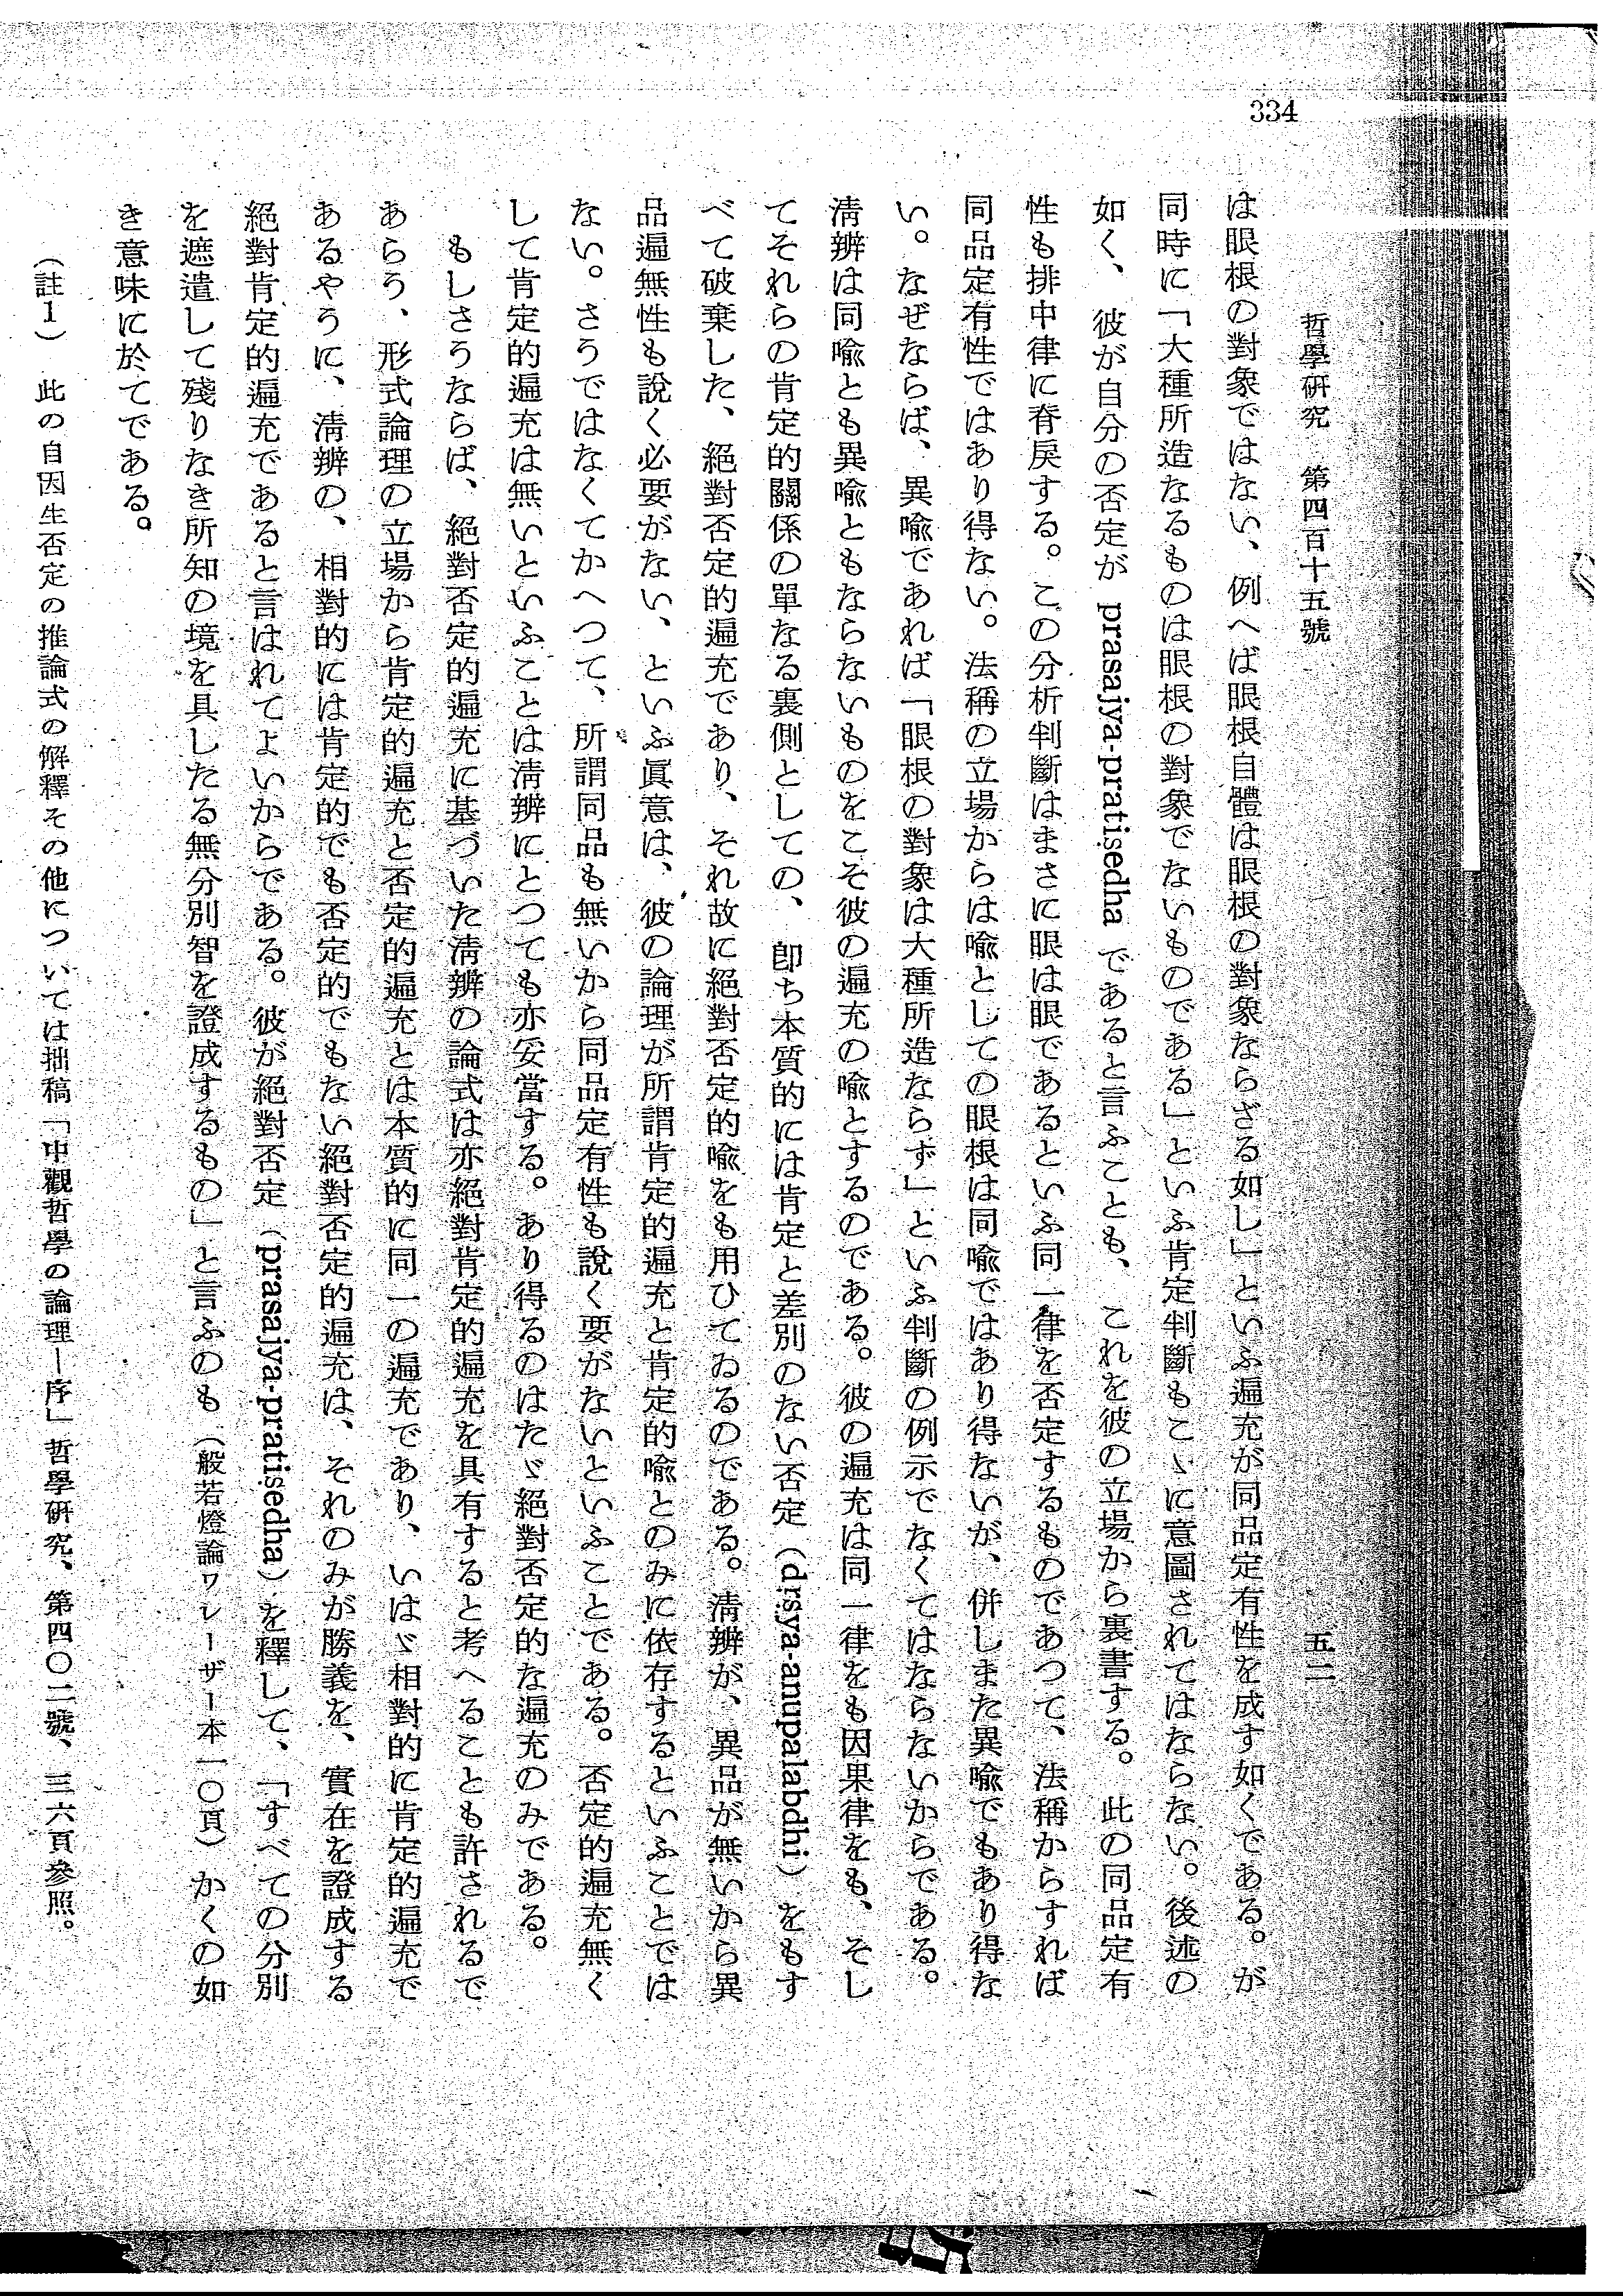 334
哲學硏究　第四百十五號　五二
は眼根の對象ではない、例へば眼根自體は眼根の對象ならざる如し」といふ遍充が同品定有性を成す如くである。が
同時に「大種所造なるものは眼根の對象でないものである」といふ肯定判斷もこゝに意圖されてはならない。後述の
如く、彼が自分の否定が prasajya-pratiṣedha であると言ふことも、これを彼の立場から裏書する。此の同品定有
性も排中律に脊戾する。この分析判斷はまさに眼は眼であるといふ同一律を否定するものであつて、法稱からすれば
同品定有性ではあり得ない。法稱の立場からは喩としての眼根は同喩ではあり得ないが、併しまた異喩でもあり得な
い。なぜならば、異喩であれば「眼根の對象は大種所造ならず」といふ判斷の例示でなくてはならないからである。
淸辨は同喩とも異喩ともならないものをこそ彼の遍充の喩とするのである。彼の遍充は同一律をも因果律をも、そし
てそれらの肯定的關係の單なる裏側としての、卽ち本質的には肯定と差別のない否定（dṛśya-anupalabdhi）をもす
べて破棄した、絕對否定的遍充であり、それ故に絕對否定的喩をも用ひてゐるのである。淸辨が、異品が無いから異
品遍無性も說く必要がない、といふ眞意は、彼の論理が所謂肯定的遍充と肯定的喩とのみに依存するといふことでは
ない。さうではなくてかへつて、所謂同品も無いから同品定有性も說く要がないといふことである。否定的遍充無く
して肯定的遍充は無いといふことは淸辨にとつても亦妥當する。あり得るのはたゞ絕對否定的な遍充のみである。
もしさうならば、絕對否定的遍充に基づいた淸辨の論式は亦絕對肯定的遍充を具有すると考へることも許されるで
あらう、形式論理の立場から肯定的遍充と否定的遍充とは本質的に同一の遍充であり、いはゞ相對的に肯定的遍充で
あるやうに、淸辨の、相對的には肯定的でも否定的でもない絕對否定的遍充は、それのみが勝義を、實在を證成する
絕對肯定的遍充であると言はれてよいからである。彼が絕對否定（prasajya-pratiṣedha）を釋して、「すべての分別
を遮遣して殘りなき所知の境を具したる無分別智を證成するもの」と言ふのも（般若燈論ワレーザー本一〇頁）かくの如
き意味に於てである。
（註１）　此の自因生否定の推論式の解釋その他については拙稿「中觀哲學の論理―序」哲學硏究、第四〇二號、三六頁參照。